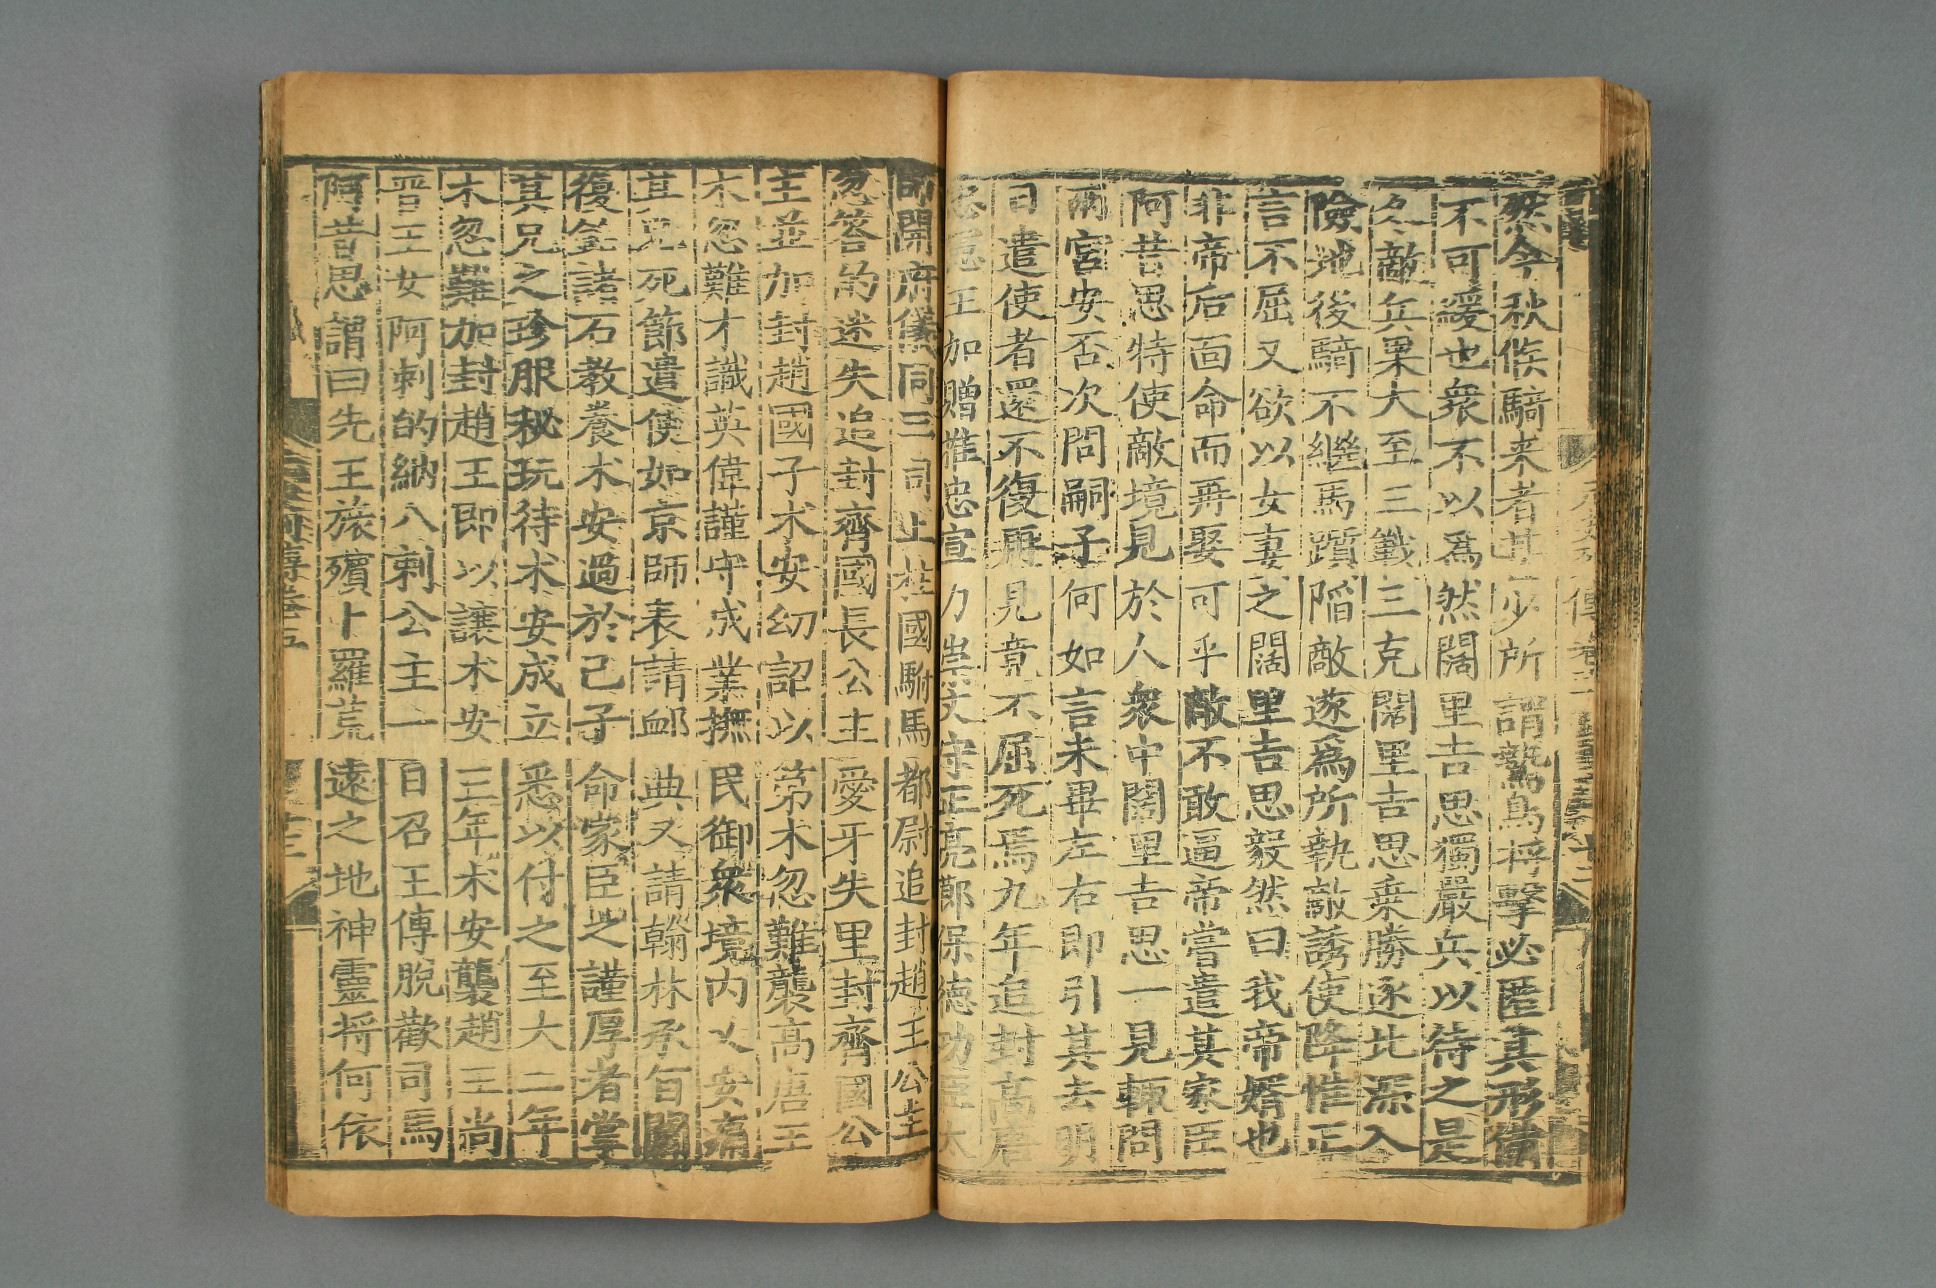 然今秋候騎来者甚少所謂鷙鳥将擊必匿其形備
不可緩也衆不以爲然闊里吉思獨嚴兵以待之是
冬敵兵果大至三戰三克闊里吉思乗勝逐北深入
險地後騎不繼馬躓陷敵遂爲所執敵誘使降惟正
言不屈又欲以女妻之闊里吉思毅然曰我帝婿也
非帝后面命而再娶可乎敵不敢逼帝嘗遣其家臣
阿昔思特使敵境見於人衆中闊里吉思一見輒問
兩宮安否次問嗣子何如言未畢左右即引其去明
日遣使者還不復再見竟不屈死焉九年追封高唐
忠憲王加贈推忠宣力崇文守正亮節保德功臣太
師開府儀同三司上柱國駙馬都尉追封趙王公主
忽答的迷失追封齊國長公主愛牙失里封齊國公
主並加封趙國子术安幼詔以弟木忽難襲高唐王
木忽難才識英偉謹守成業撫民御衆境内乂安痛
其兄死節遣使如京師表請䘏典又請翰林承旨閻
復銘諸石教養术安過於己子命家臣之謹厚者掌
其兄之珍服秘玩待术安成立悉以付之至大二年
木忽難加封趙王即以讓术安三年术安襲趙王尚
晋王女阿剌的納八剌公主一日召王傅脫歡司馬
阿昔思謂曰先王旅殯卜羅荒遠之地神靈将何依
元史列傳卷五
十三